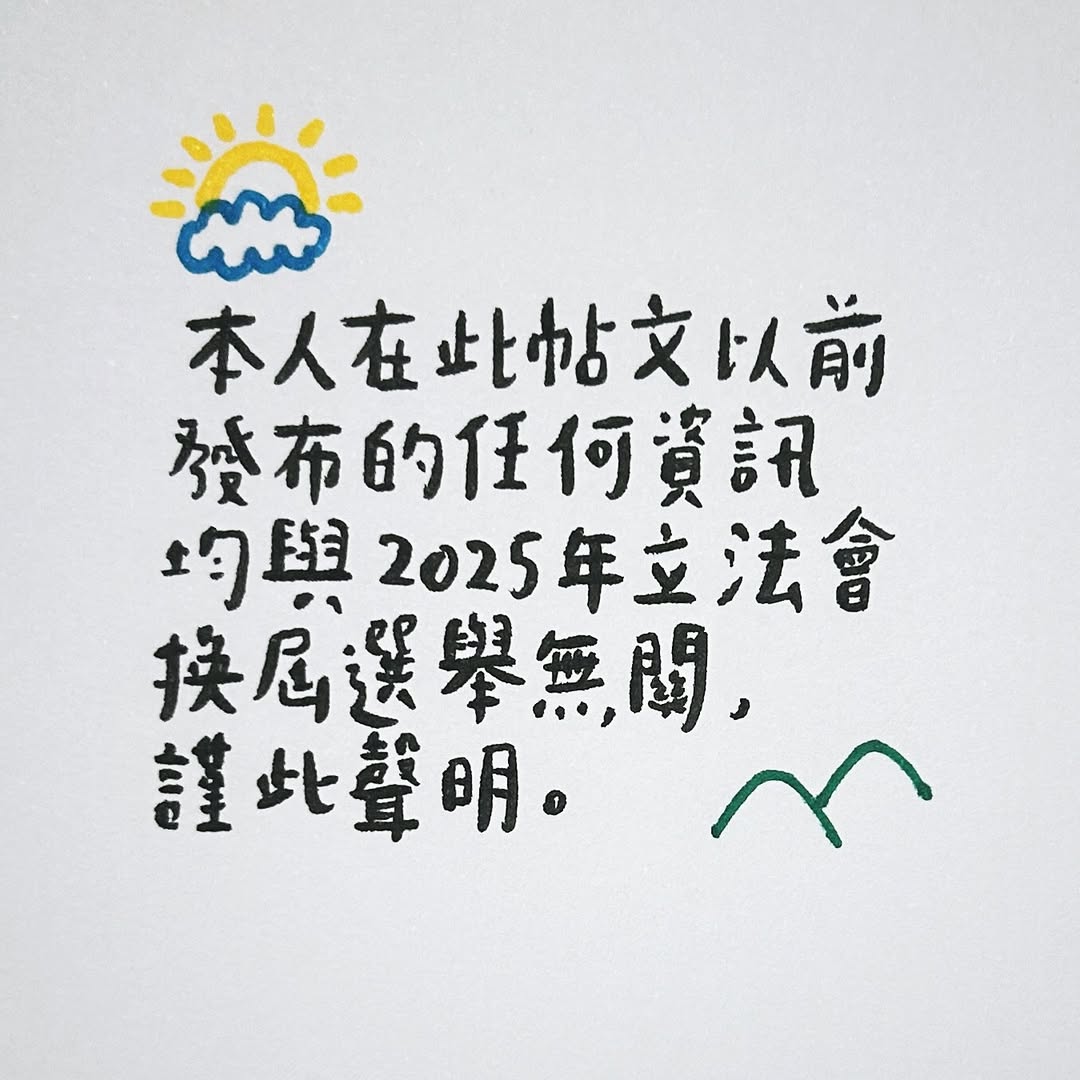 本人在此帖文以前
發布的任何資訊
均與2025年立法會
換屆選舉無關，
謹此聲明。